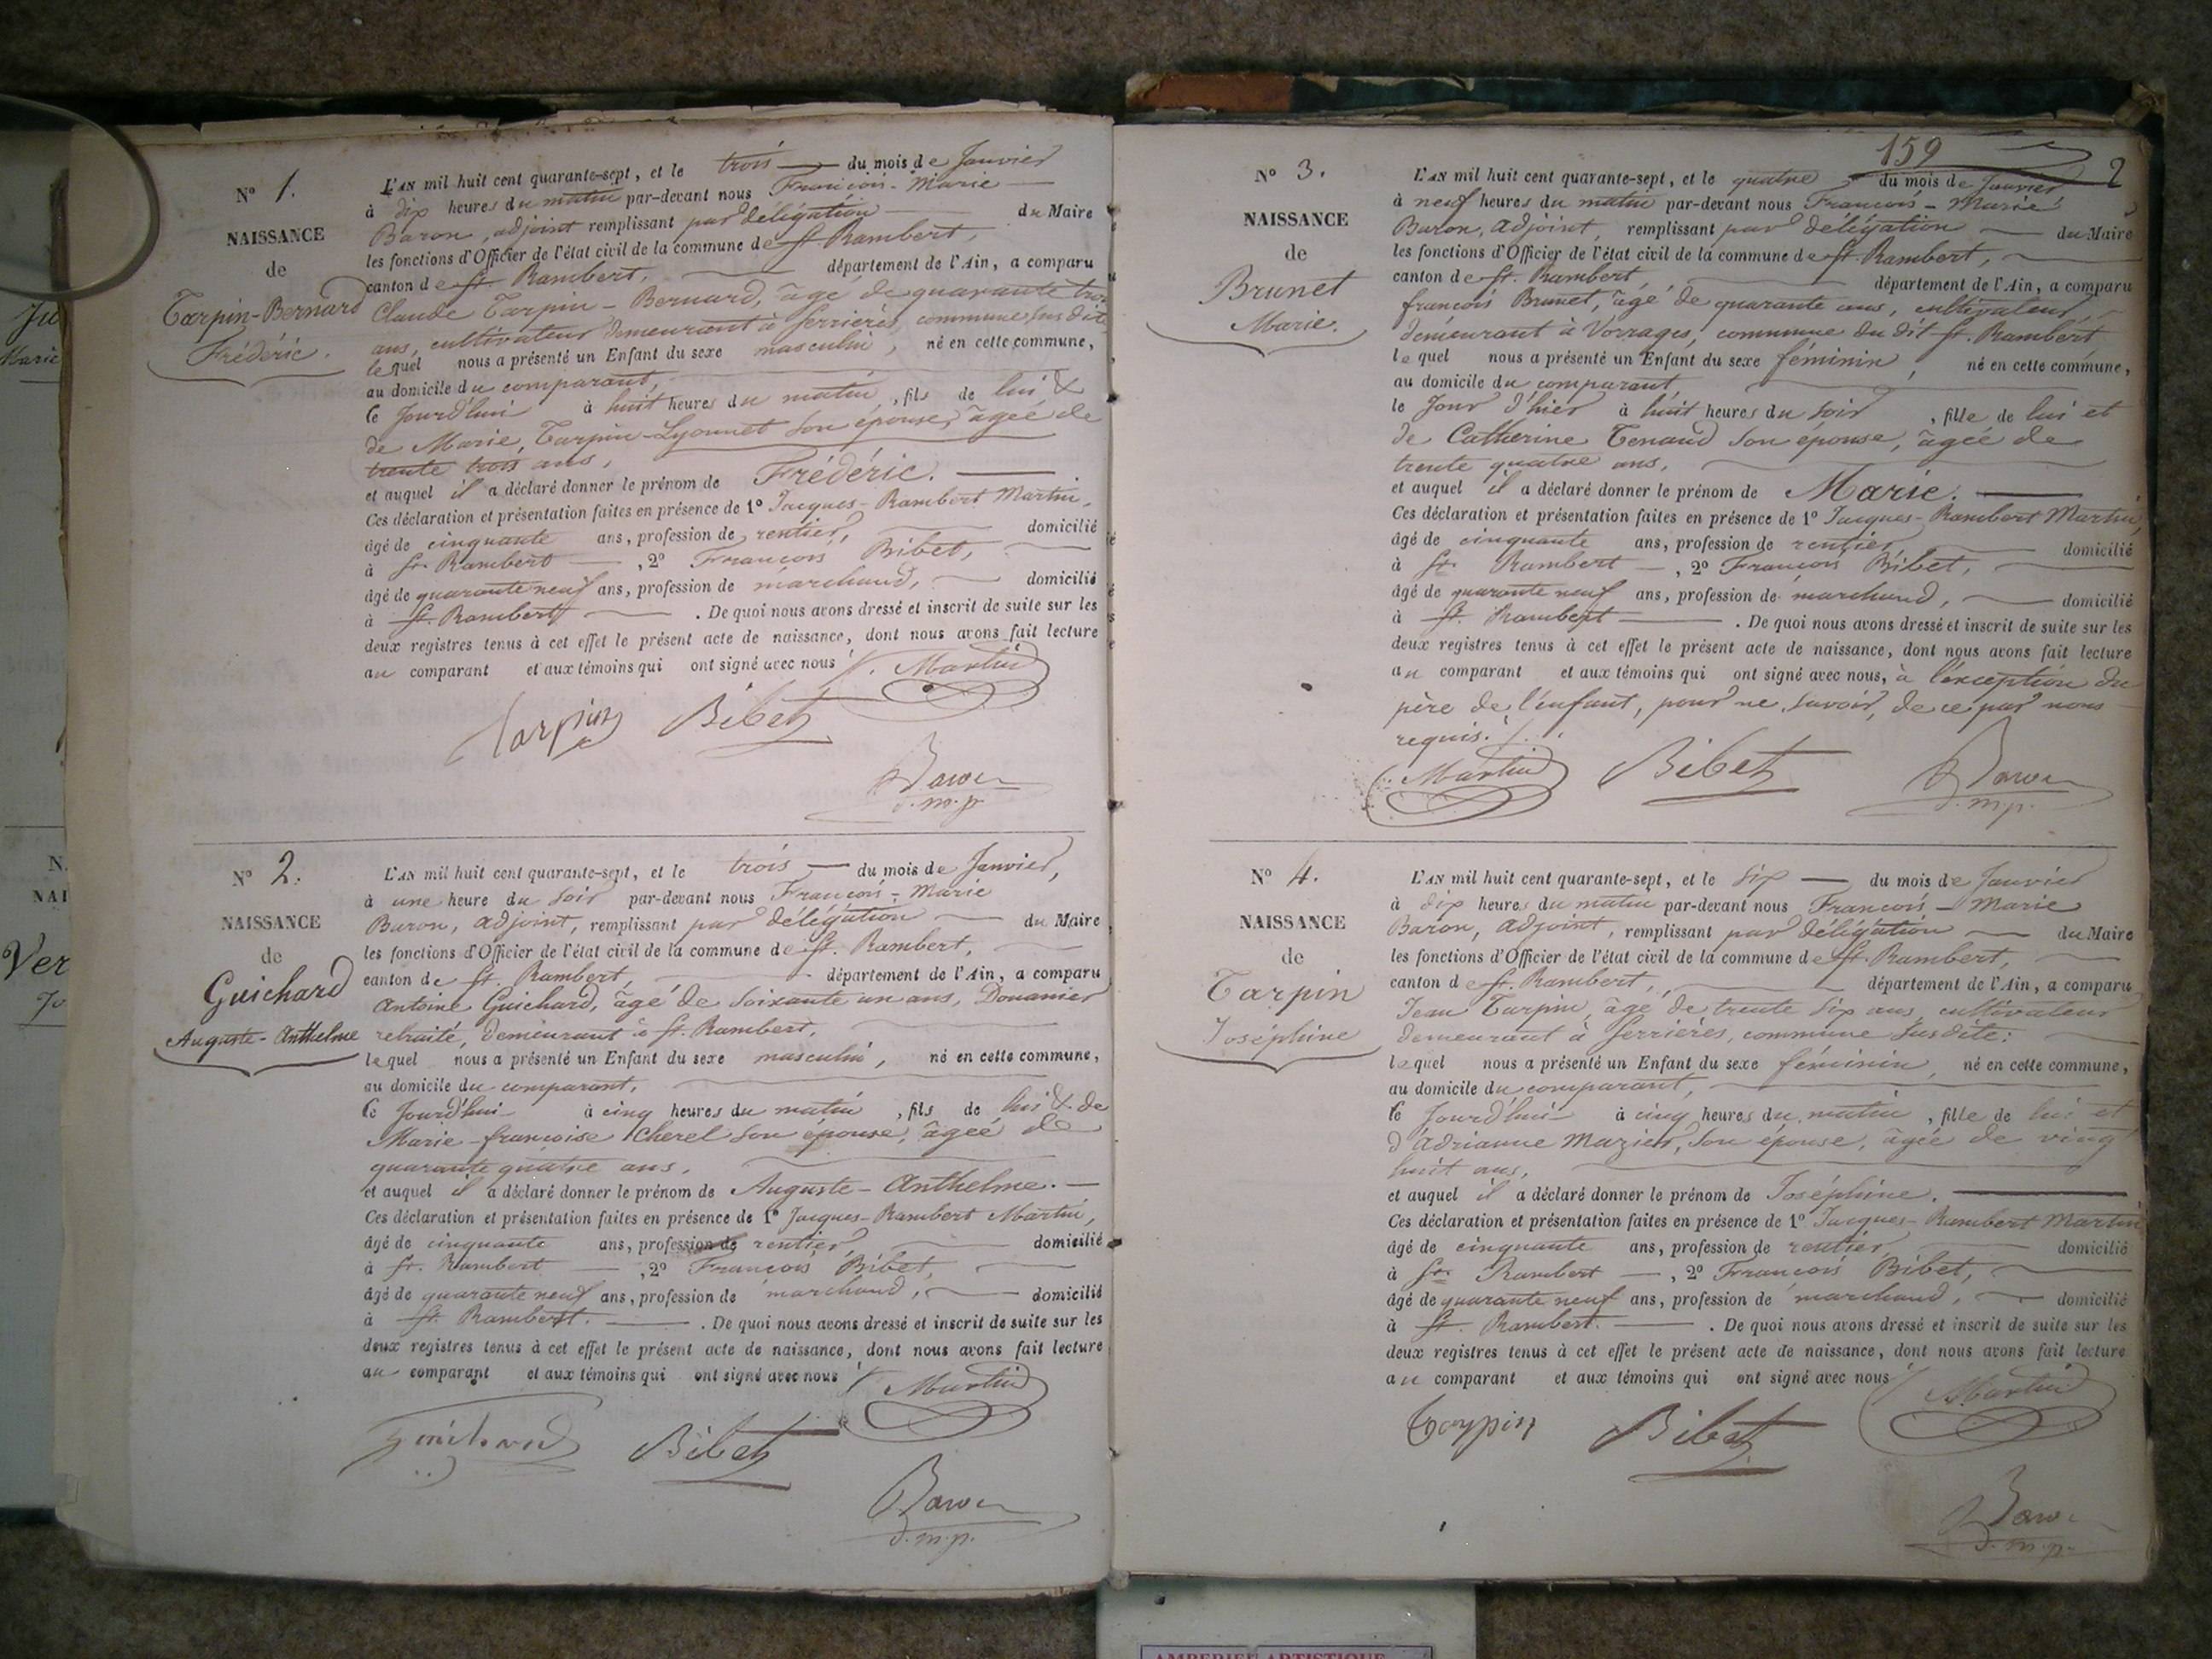 N° 1.
NAISSANCE
de
Tarpin-Bernard
Frédéric.
L'AN mil huit cent quarante-sept, et le trois du mois de Janvier
à dix heures du matin par-devant nous François-Marie
Baron, adjoint remplissant par délégation du Maire
les fonctions d'Officier de l'état civil de la commune de St. Rambert,
canton de St. Rambert, département de l'Ain, a comparu
Claude Tarpin-Bernard, âgé de quarante trois
ans, cultivateur demeurant à Serrières, commune susdite
lequel nous a présenté un Enfant du sexe masculin, né en cette commune,
au domicile du comparant,
le Jourd'hui à huit heures du matin, fils de lui &
de Marie Tarpin-Lyonnet son épouse, âgée de
trente trois ans,
et auquel il a déclaré donner le prénom de Frédéric.
Ces déclaration et présentation faites en présence de 1° Jacques-Rambert Martin,
âgé de cinquante ans, profession de rentier, domicilié
à St. Rambert, 2° François Bibet,
âgé de quarante neuf ans, profession de marchand, domicilié
à St. Rambert. De quoi nous avons dressé et inscrit de suite sur les
deux registres tenus à cet effet le présent acte de naissance, dont nous avons fait lecture
au comparant et aux témoins qui ont signé avec nous
Martin
Tarpin Bibet
Baron
d.m.p.
N° 2.
NAISSANCE
de
Guichard
Auguste-Anthelme
L'AN mil huit cent quarante-sept, et le trois du mois de Janvier,
à une heure du soir par-devant nous François-Marie
Baron, adjoint, remplissant par délégation du Maire
les fonctions d'Officier de l'état civil de la commune de St. Rambert,
canton de St. Rambert, département de l'Ain, a comparu
Antoine Guichard, âgé de soixante un ans, Douanier
retraité, demeurant à St. Rambert,
lequel nous a présenté un Enfant du sexe masculin, né en cette commune,
au domicile du comparant,
le Jourd'hui à cinq heures du matin, fils de lui & de
Marie-françoise Cherel son épouse, âgée de
quarante quatre ans,
et auquel il a déclaré donner le prénom de Auguste-Anthelme.
Ces déclaration et présentation faites en présence de 1° Jacques-Rambert Martin,
âgé de cinquante ans, profession de rentier, domicilié
à St. Rambert, 2° François Bibet,
âgé de quarante neuf ans, profession de marchand, domicilié
à St. Rambert. De quoi nous avons dressé et inscrit de suite sur les
deux registres tenus à cet effet le présent acte de naissance, dont nous avons fait lecture
au comparant et aux témoins qui ont signé avec nous
Martin
Guichard Bibet
Baron
d.m.p.
159
2
N° 3.
NAISSANCE
de
Brunet
Marie.
L'AN mil huit cent quarante-sept, et le quatre du mois de Janvier
à neuf heures du matin par-devant nous François-Marie
Baron, adjoint, remplissant par délégation du Maire
les fonctions d'Officier de l'état civil de la commune de St. Rambert,
canton de St. Rambert, département de l'Ain, a comparu
françois Brunet, âgé de quarante ans, cultivateur,
demeurant à Vorrages, commune du dit St. Rambert
lequel nous a présenté un Enfant du sexe féminin, né en cette commune,
au domicile du comparant,
le Jour d'hier à huit heures du soir, fille de lui et
de Catherine Tenaud son épouse, âgée de
trente quatre ans,
et auquel il a déclaré donner le prénom de Marie.
Ces déclaration et présentation faites en présence de 1° Jacques-Rambert Martin,
âgé de cinquante ans, profession de rentier domicilié
à St. Rambert, 2° François Bibet,
âgé de quarante neuf ans, profession de marchand, domicilié
à St. Rambert. De quoi nous avons dressé et inscrit de suite sur les
deux registres tenus à cet effet le présent acte de naissance, dont nous avons fait lecture
au comparant et aux témoins qui ont signé avec nous, à l'exception du
père de l'enfant, pour ne savoir, de ce par nous
requis.
Martin Bibet Baron
d.m.p.
N° 4.
NAISSANCE
de
Tarpin
Joséphine
L'AN mil huit cent quarante-sept, et le six du mois de Janvier
à dix heures du matin par-devant nous François-Marie
Baron, adjoint, remplissant par délégation du Maire
les fonctions d'Officier de l'état civil de la commune de St. Rambert,
canton de St. Rambert, département de l'Ain, a comparu
Jean Tarpin, âgé de trente six ans, cultivateur
demeurant à Serrières, commune susdite:
lequel nous a présenté un Enfant du sexe féminin, né en cette commune,
au domicile du comparant,
le Jourd'hui à cinq heures du matin, fille de lui et
d'Adrianne Mazier, son épouse, âgée de vingt
huit ans,
et auquel il a déclaré donner le prénom de Joséphine.
Ces déclaration et présentation faites en présence de 1° Jacques-Rambert Martin
âgé de cinquante ans, profession de rentier, domicilié
à St. Rambert, 2° François Bibet,
âgé de quarante neuf ans, profession de marchand, domicilié
à St. Rambert. De quoi nous avons dressé et inscrit de suite sur les
deux registres tenus à cet effet le présent acte de naissance, dont nous avons fait lecture
au comparant et aux témoins qui ont signé avec nous
Martin
Tarpin Bibet
Baron
d.m.p.
AMBERIEU ARTISTIQUE